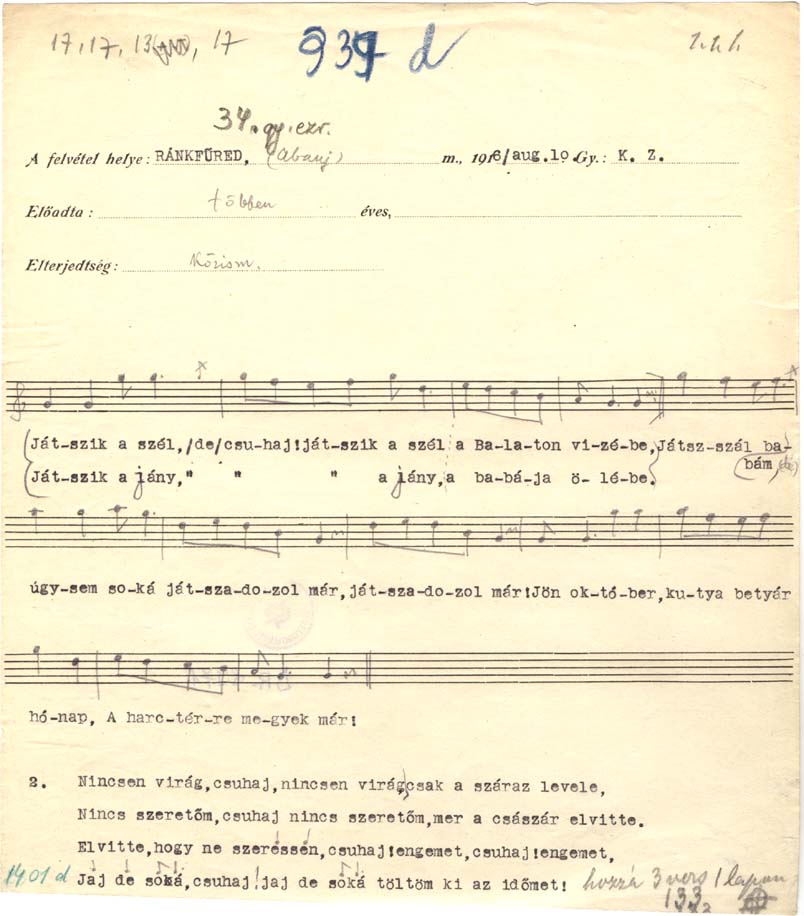 17, 17, 13, 17
937 d
1.1.1.
34. gy. ezr.
A felvétel helye: RÁNKFÜRED, (Abauj) m., 1916/aug.10. Gy.: K. Z.
Előadta: többen éves,
Elterjedtség: Közism.
Ját-szik a szél,/de/csu-haj!ját-szik a szél a Ba-la-ton vi-zé-be,Játsz-szál ba-
Ját-szik a jány," " " a jány,a ba-bá-ja ö-lé-be. bám,
úgy-sem so-ká ját-sza-do-zol már,ját-sza-do-zol már!Jön ok-tó-ber,ku-tya betyár
hó-nap, A harc-tér-re me-gyek már!
2. Nincsen virág,csuhaj,nincsen virág,csak a száraz levele,
Nincs szeretőm,csuhaj nincs szeretőm,mer a császár elvitte.
Elvitte,hogy ne szeressén,csuhaj!engemet,csuhaj!engemet,
1401 d Jaj de soká,csuhaj!jaj de soká töltöm ki az időmet! hozzá 3 vers 1 lapon
133